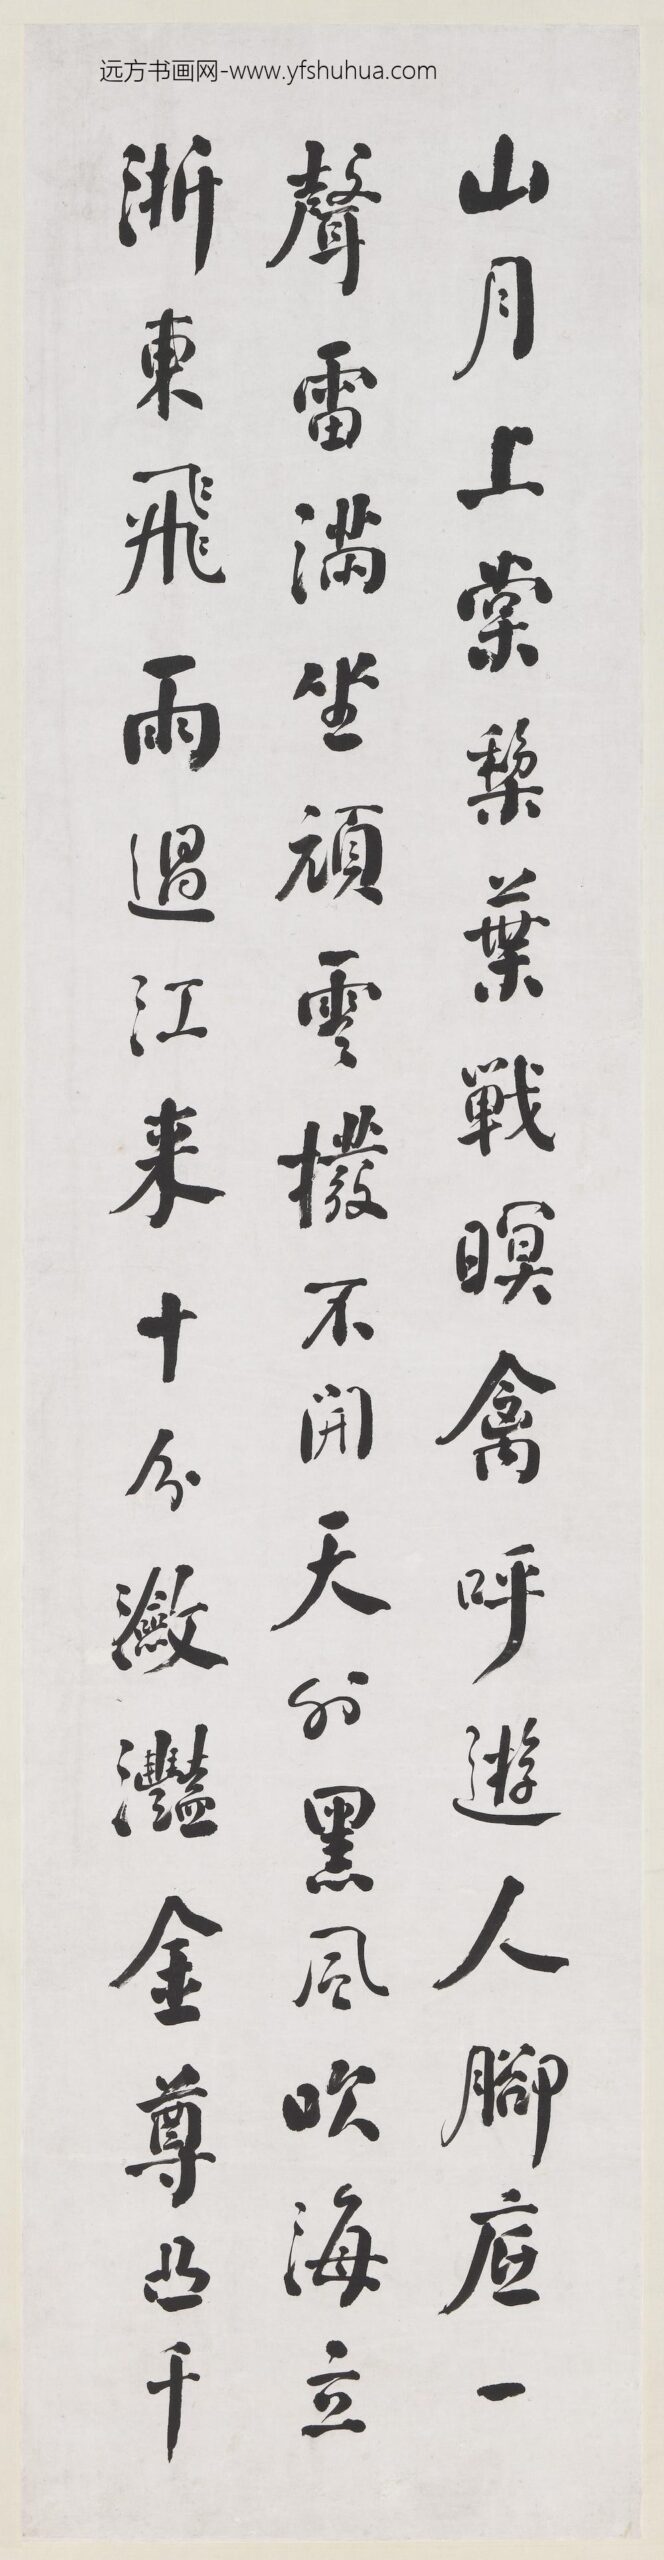 远方书画网-www.yfshuhua.com
山月上棠棃葉戰暝禽呼遊人腳底一
聲雷滿坐頑雲撥不開天外黑風吹海立
浙東飛雨過江来十分瀲灩金尊凸千